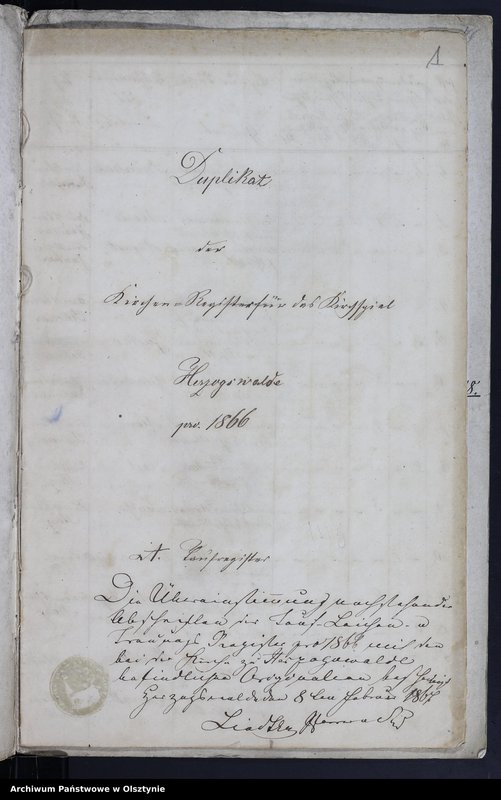 1
Duplikat
der
Kirchen-Register für das Kirchspiel
Herzogswalde
pro. 1866
A. Taufregister
Die Übereinstimmung nachstehender
Abschriften der Tauf- Leichen- u
Trauungs Register pro 1866 mit den
bei der Kirche zu Herzogswalde
befindlichen Originalien bescheinigt
Herzogswalde den 8 ten Februar 1867
Liedtke Pfarrer
8.
Archiwum Państwowe w Olsztynie